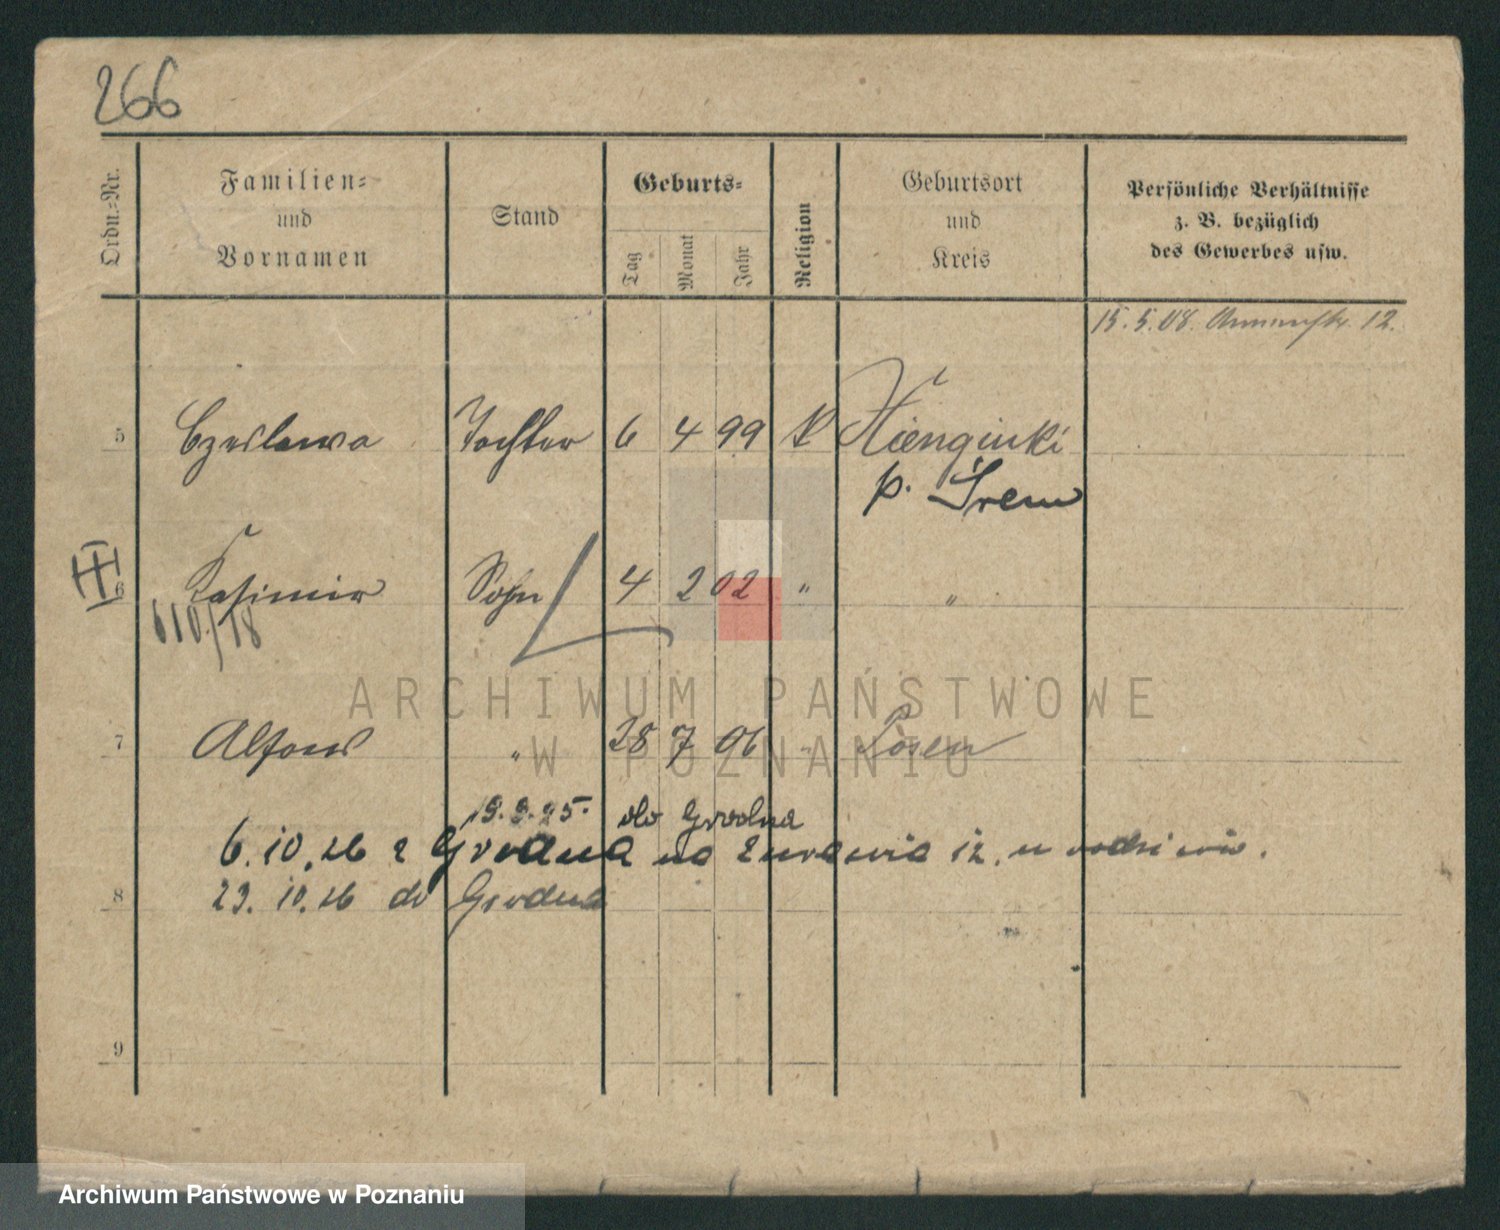 266
Ordn.=Nr.
Familien=
und
Vornamen
Stand
Geburts=
Tag
Monat
Jahr
Religion
Geburtsort
und
Kreis
Persönliche Verhältnisse
z. B. bezüglich
des Gewerbes usw.
15. 5. 08. 12.
5 Czeslawa Tochter 6 4 99 K
p. Śrem
6 Kasimir Sohn 4 2 02 " "
610/18
ARCHIWUM PAŃSTWOWE
7 Alfons " 28 7 06 " Posen
W POZNANIU
19.9.25. do Grodna
6.10.26 z Grodna na Żurawia 12. u rodziców.
8 23.10.26 do Grodna
9
Archiwum Państwowe w Poznaniu